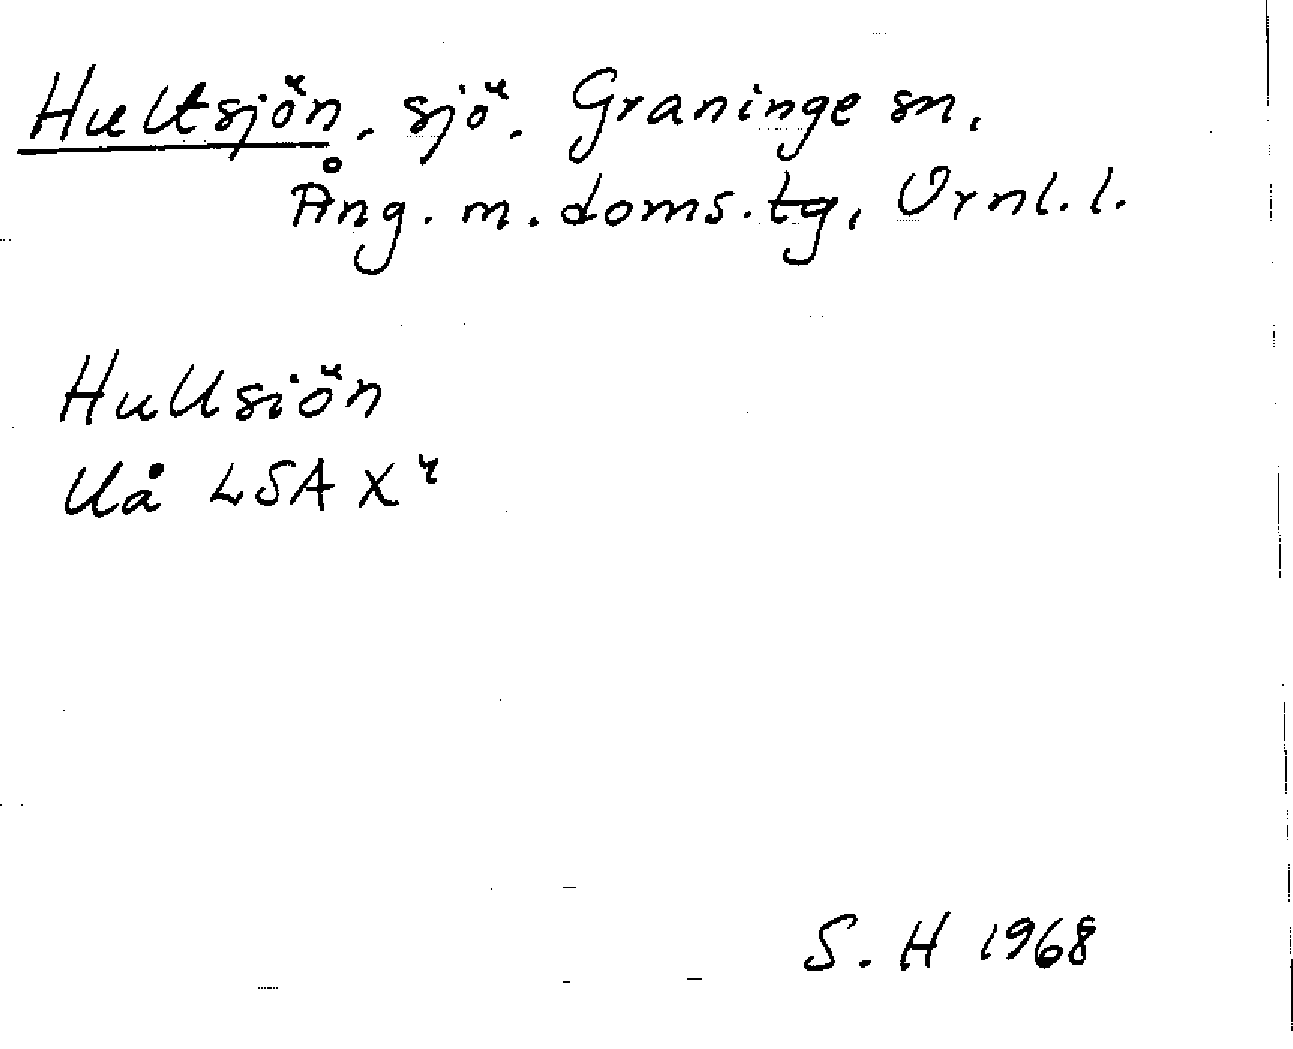 Hultsjön, sjö. Graninge sn.
Ång. m. doms. tg, Vrnl. l.
Hullsiön
Uå LSA X 4
S. H 1968